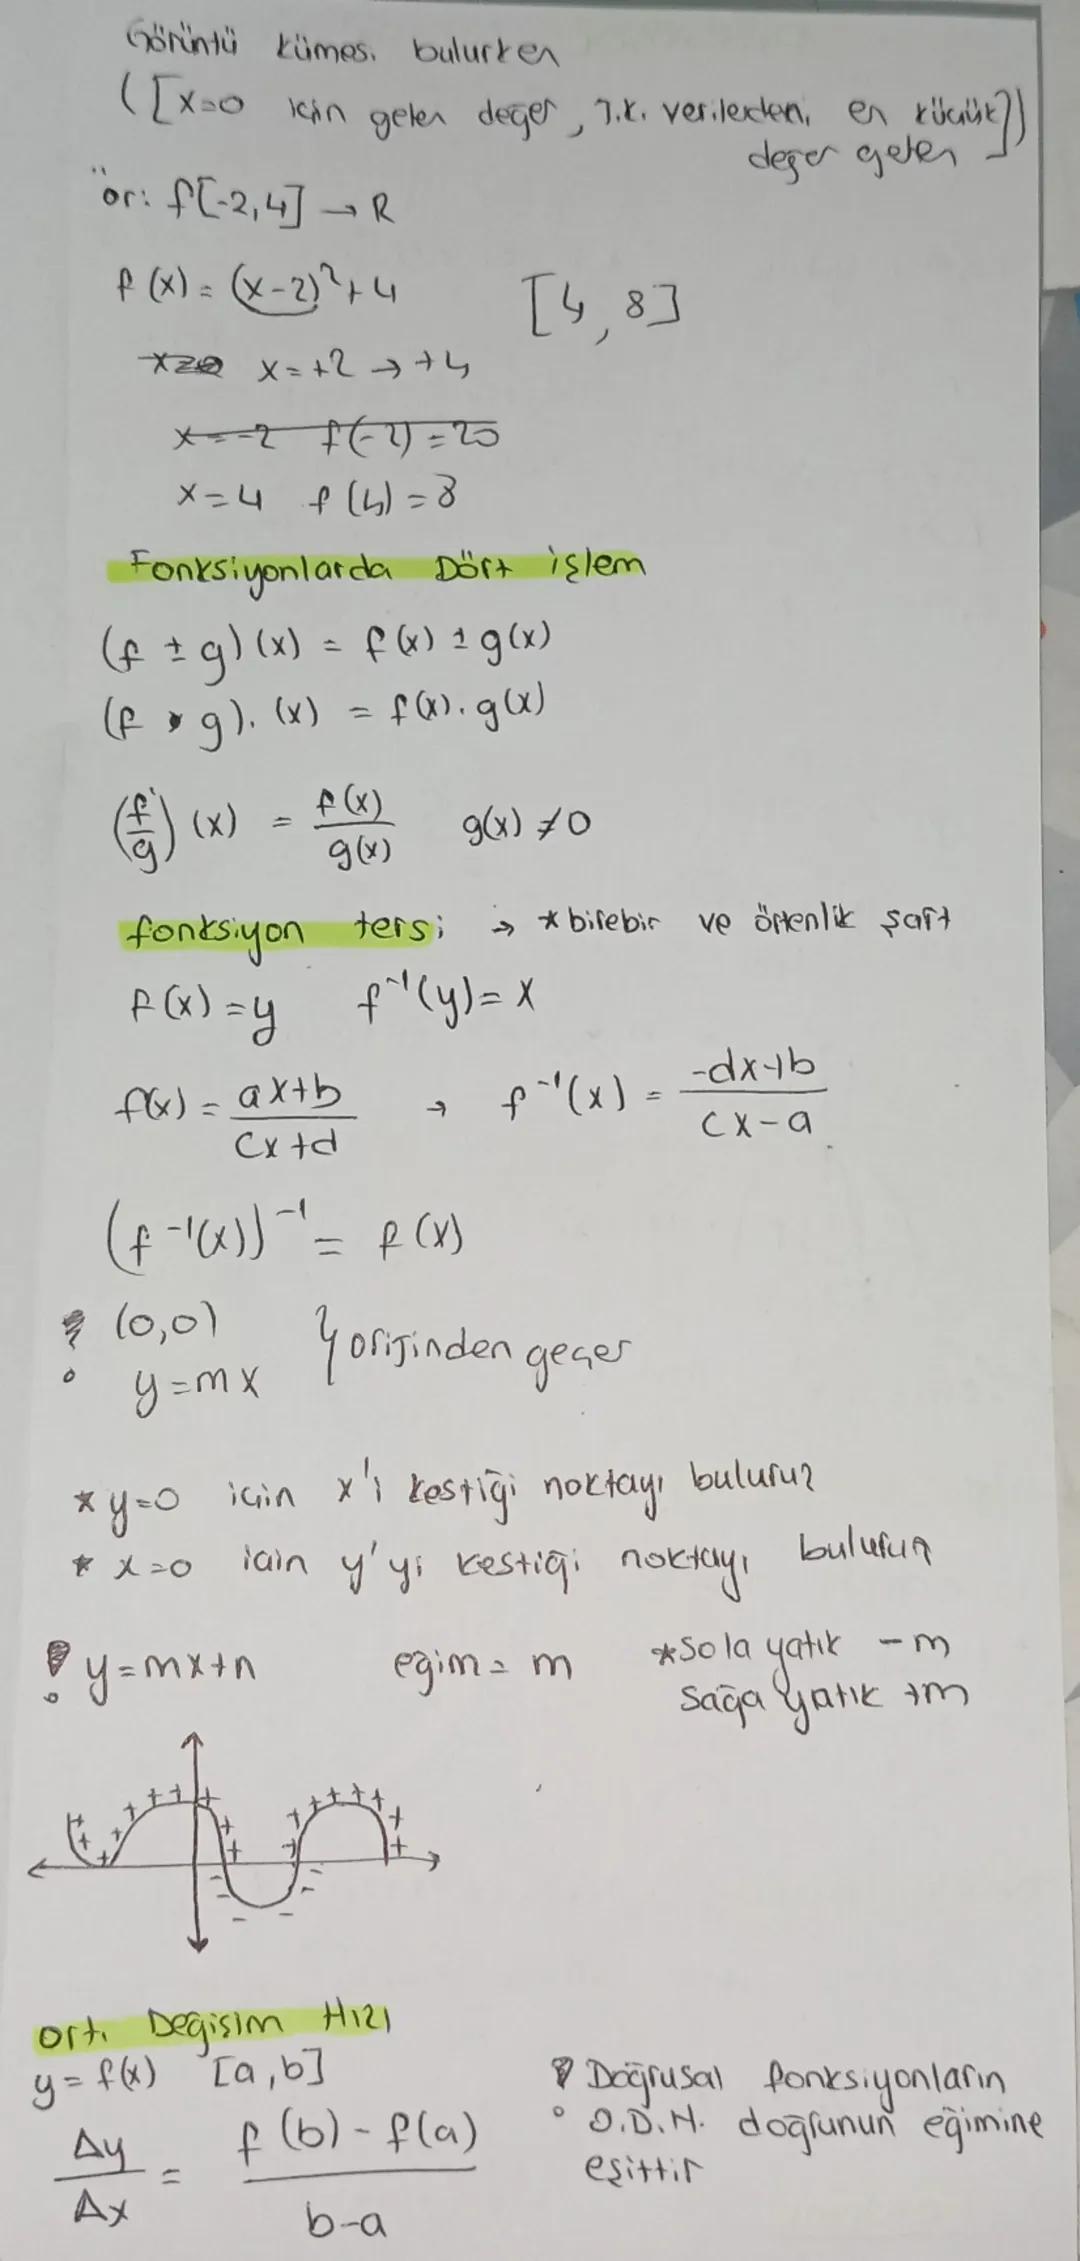 Görüntü kümesi bulurken
([x=0 için gelen değer, T.K. verilerden, en küçük])
değer gelen
ör: f[-2,4] → R
f(x) = (x-2)²+4 [4,8]
x=+2 → +4
x=-2 f(-2)=20
x=4 f(4)=8
Fonksiyonlarda Dört işlem
(f ± g)(x) = f(x) ± g(x)
(f . g).(x) = f(x).g(x)
(f/g)(x) = f(x)/g(x) g(x) ≠ 0
fonksiyon tersi → *birebir ve örtenlik şart
f(x)=y f⁻¹(y)=x
f(x) = ax+b/cx+d → f⁻¹(x) = -dx+b/cx-a
(f⁻¹(x))⁻¹ = f(x)
! (0,0)
y=mx } orijinden geçer
* y=0 için x'i kestiği noktayı buluruz
* x=0 için y'yi kestiği noktayı buluruz
! y=mx+n eğim=m *Sola yatık -m
Sağa yatık +m
Ort. Değişim Hızı
y=f(x) [a,b]
Δy/Δx = f(b)-f(a)/b-a
! Doğrusal fonksiyonların
O.D.H. doğrunun eğimine
eşittir